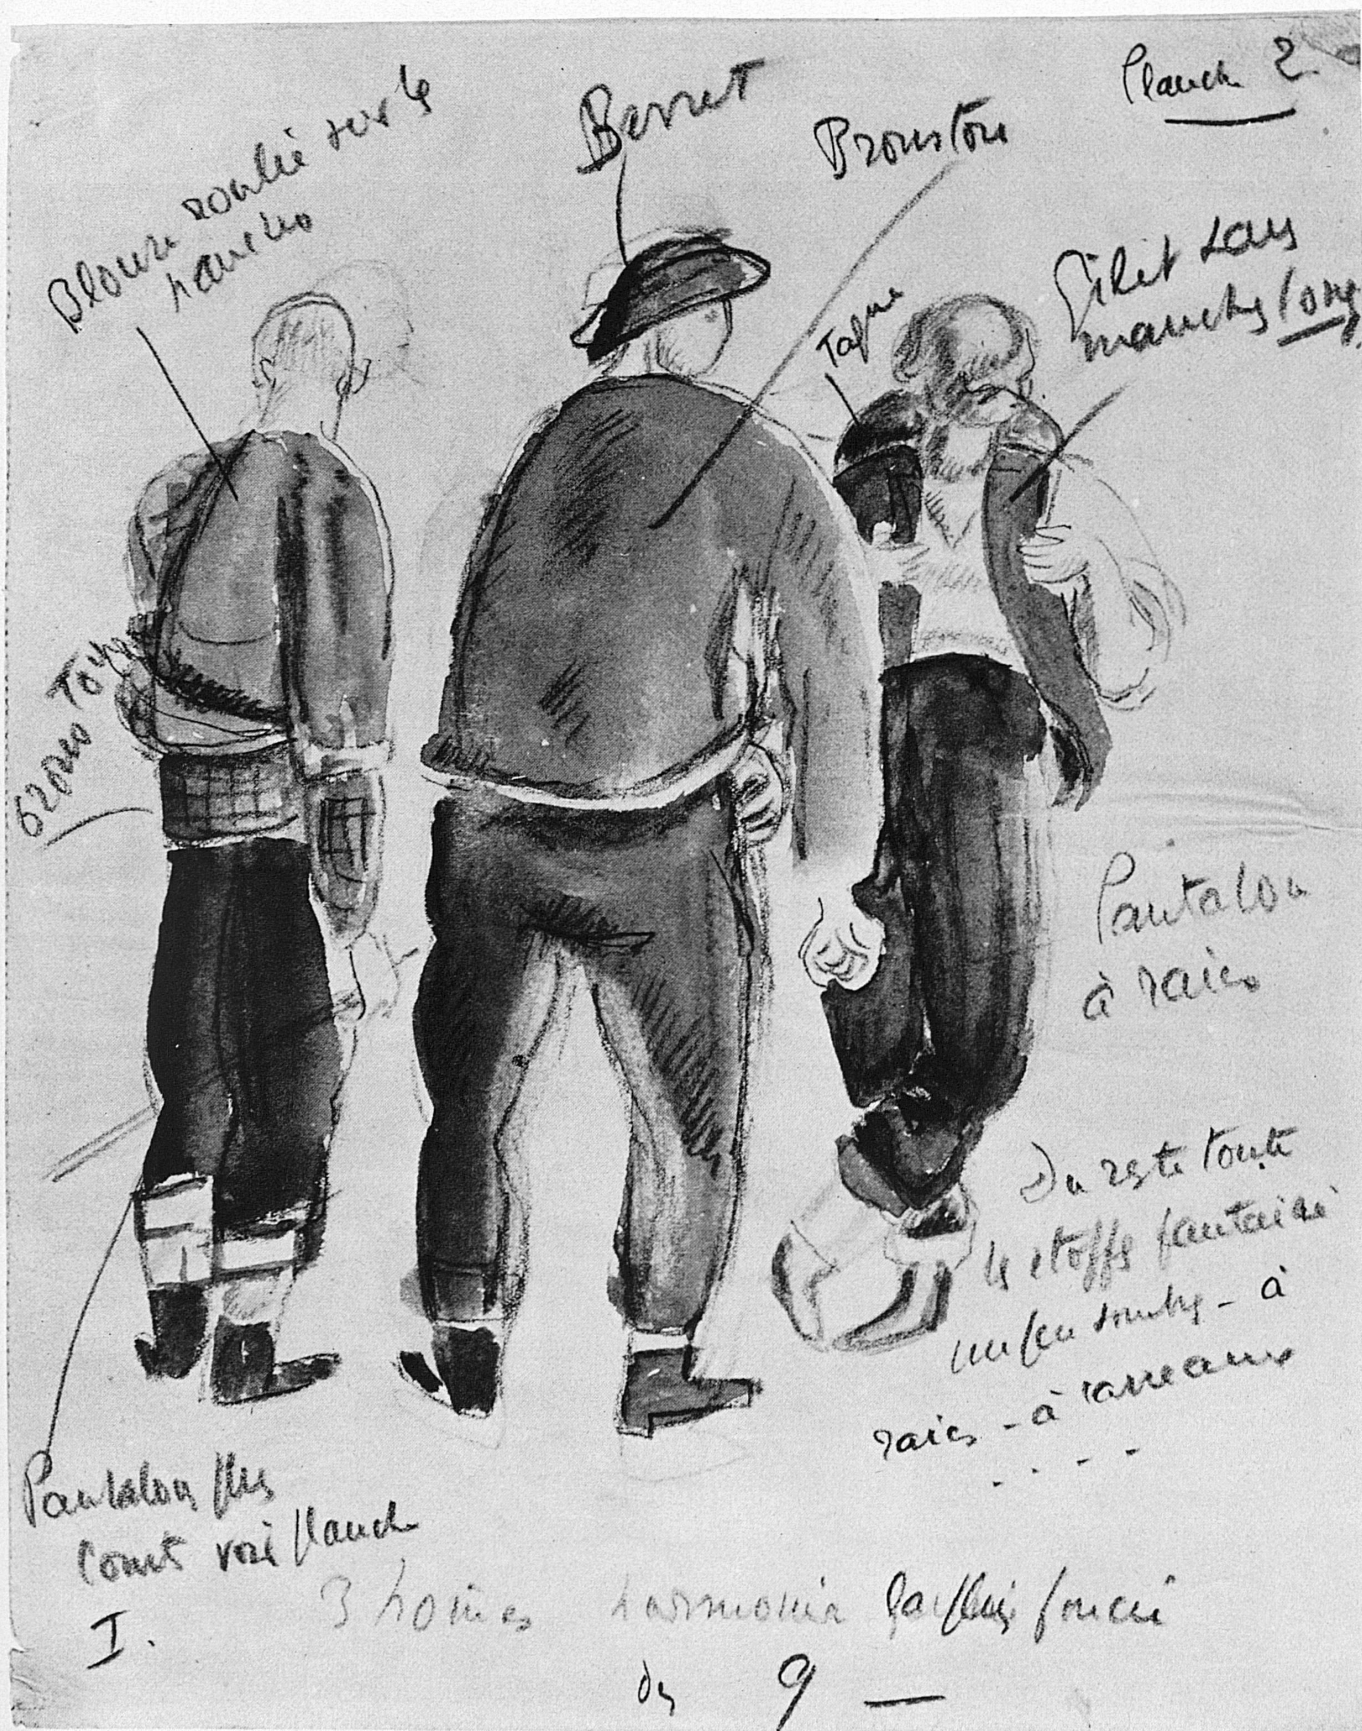 Planche 2
Blouse roulée sur les
hanches
Berret
Brouston
Taque
Gilet sans
manches long
gros
Pantalon
à raies
Du reste toute
les étoffes fantaisie
un peu sombres - à
raies - à carreaux
. . - -
Pantalon plus
court voir planche
I.
3 homes harmonie la plus foncée
des 9 —